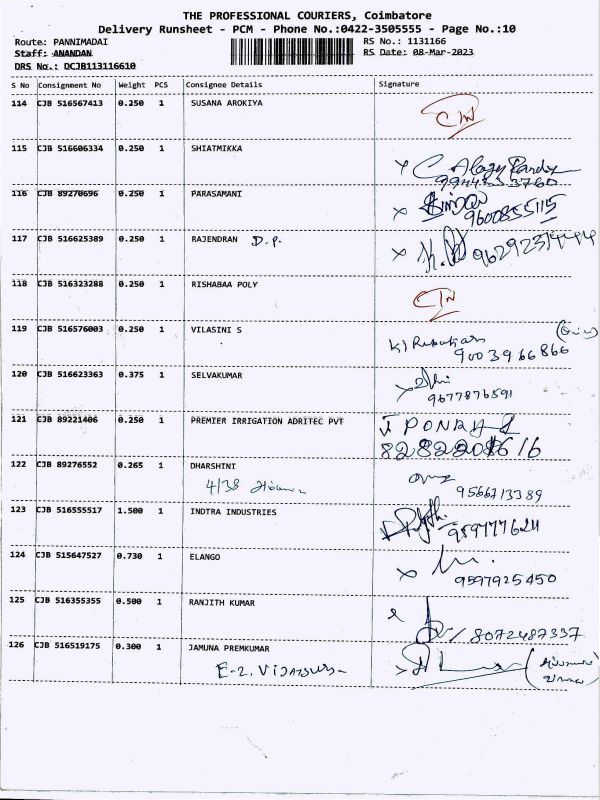 THE PROFESSIONAL COURIERS, Coimbatore
Delivery Runsheet - PCM - Phone No.:0422-3505555 - Page No.:10
Route: PANNIMADAI RS No.: 1131166
Staff: ANANDAN RS Date: 08-Mar-2023
DRS No.: DCJB113116610
S No Consignment No Weight PCS Consignee Details Signature
114 CJB 516567413 0.250 1 SUSANA AROKIYA
115 CJB 516606334 0.250 1 SHIATMIKKA
116 CJB 89270696 0.250 1 PARASAMANI
9600855115
117 CJB 516625389 0.250 1 RAJENDRAN D.P.
118 CJB 516323288 0.250 1 RISHABAA POLY
119 CJB 516576003 0.250 1 VILASINI S
9003966866
120 CJB 516623363 0.375 1 SELVAKUMAR
9677876591
121 CJB 89221406 0.250 1 PREMIER IRRIGATION ADRITEC PVT
122 CJB 89276552 0.265 1 DHARSHINI
4/38
9566713389
123 CJB 516555517 1.500 1 INDTRA INDUSTRIES
124 CJB 515647527 0.730 1 ELANGO
9597925450
125 CJB 516355355 0.500 1 RANJITH KUMAR
8072487337
126 CJB 516519175 0.300 1 JAMUNA PREMKUMAR
E-2.